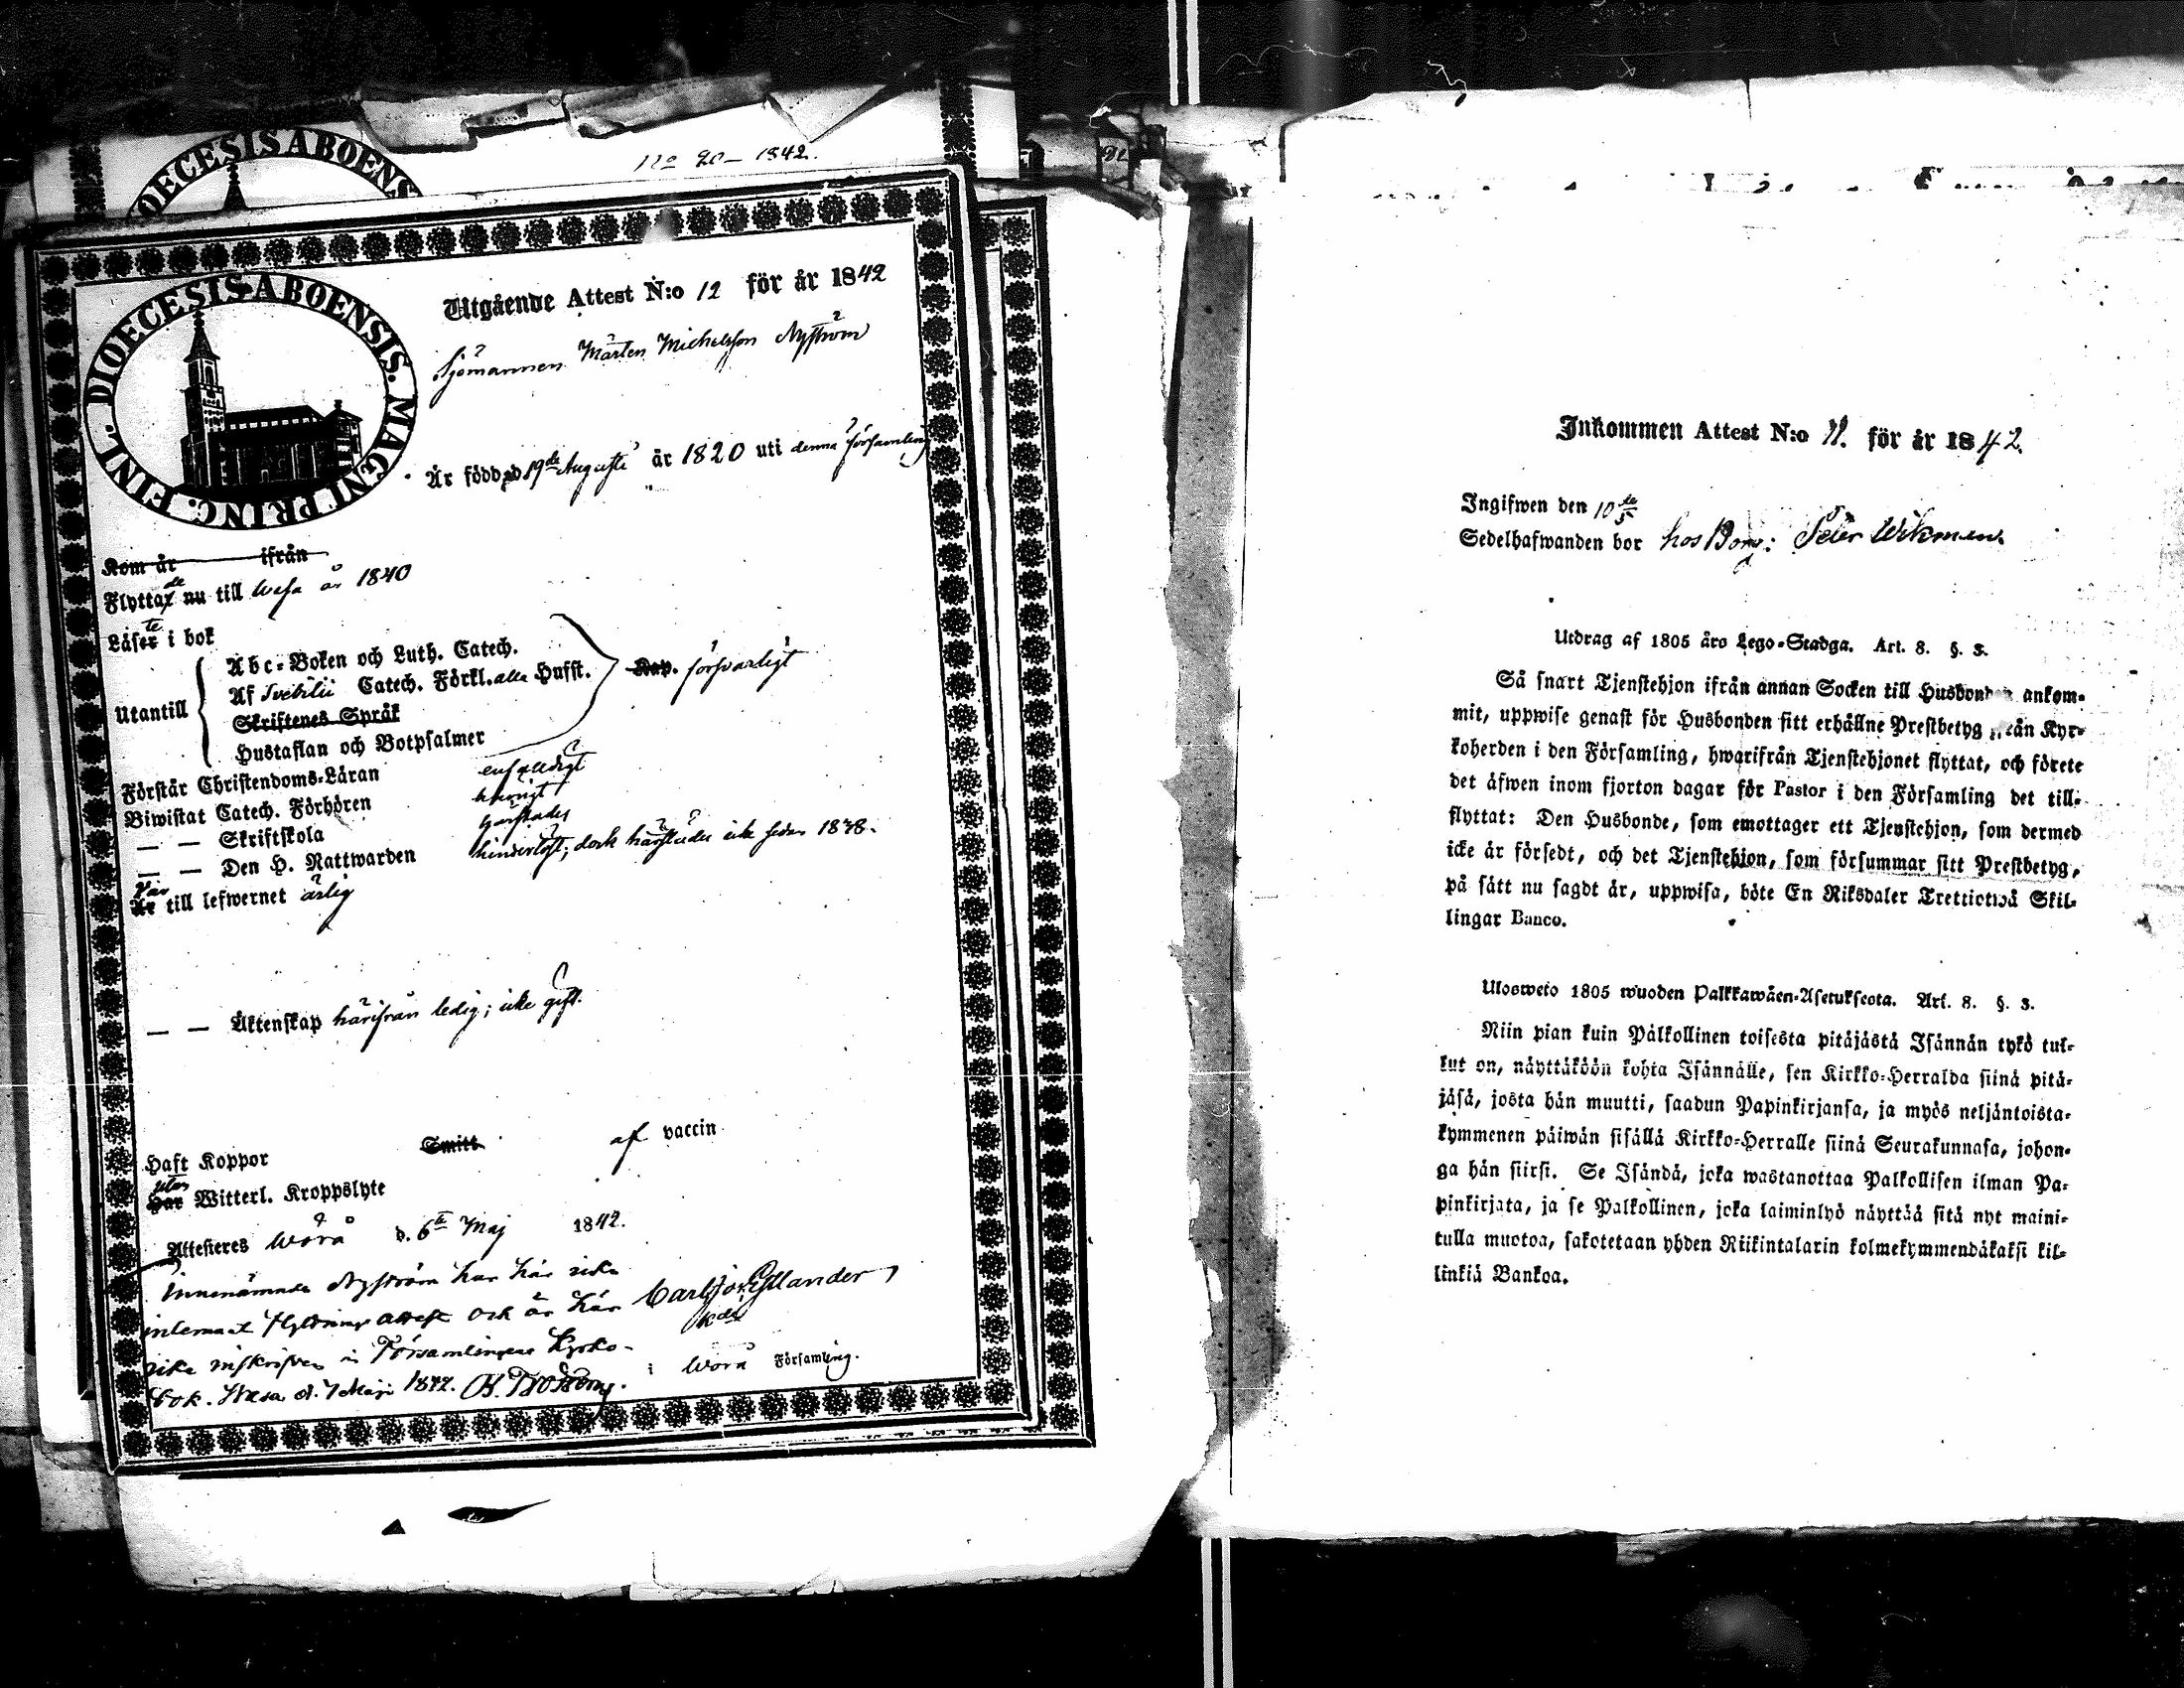 DIOECESIS ABOENS
No 20 – 1842.
DIOECESIS ABOENSIS. MAGNI PRINC. FINL.
Utgående Attest N:o 12 för år 1842
Sjömannen Mårten Michelsson Nyström
Är född d 19de Augusti år 1820 uti denna församling
Kom år ifrån
Flyttade nu till Wasa år 1840
Läste i bok
Utantill
Abc-Boken och Luth. Catech.
Af Svebilii Catech. Förkl. alla Hufst.
Skriftenes Språk
Hustaflan och Botpsalmer
Kap. försvarligt
Förstår Christendoms-Läran enfaldigt
Biwistat Catech. Förhören
— — Skriftskola
— — Den H. Nattwarden hinderlöst; dock härstädes icke sedan 1838.
Var Är till lefwernet ärlig
— — Äktenskap härifrån ledig; icke gift.
Haft Koppor Smitt af vaccin
utan Har Witterl. Kroppslyte
Attesteres Wörå d. 6te Maj 1842.
Innenämnde Nyström har här icke
inlemnat flyttnings attest och är här
icke inskrifven i Församlingens Kyrko-
bok. Wasa d. 7 Maji 1842.
i Wörå Församling.
Inkommen Attest N:o 11. för år 1842.
Ingifwen den 10de/5
Sedelhafwanden bor hos Borg: Peter Wikman
Utdrag af 1805 års Lego-Stadga. Art. 8. §. 3.
Så snart Tjenstehjon ifrån annan Socken till Husbonden ankom-
mit, uppwise genast för Husbonden sitt erhållne Prestbetyg från Kyr-
koherden i den Församling, hwarifrån Tjenstehjonet flyttat, och förete
det äfwen inom fjorton dagar för Pastor i den Församling det till-
flyttat: Den Husbonde, som emottager ett Tjenstehjon, som dermed
icke är försedt, och det Tjenstehjon, som försummar sitt Prestbetyg,
på sätt nu sagdt är, uppwisa, böte En Riksdaler Trettiotwå Skil-
lingar Banco.
Ulosweto 1805 wuoden Palkkawäen-Asetuksesta. Art. 8. §. 3.
Niin pian kuin Pälkollinen toisesta pitäjästä Isännän tykö tul-
lut on, näyttäköön kohta Isännälle, sen Kirkko-Herralda siinä pitä-
jäsä, josta hän muutti, saadun Papinkirjansa, ja myös neljäntoista-
kymmenen päiwän sisällä Kirkko-Herralle siinä Seurakunnasa, johon-
ga hän siirsi. Se Isändä, joka wastanottaa Palkollisen ilman Pa-
pinkirjata, ja se Palkollinen, joka laiminlyö näyttää sitä nyt maini-
tulla muotoa, sakotetaan yhden Riikintalarin kolmekymmendäkaksi kil-
linkiä Bankoa.